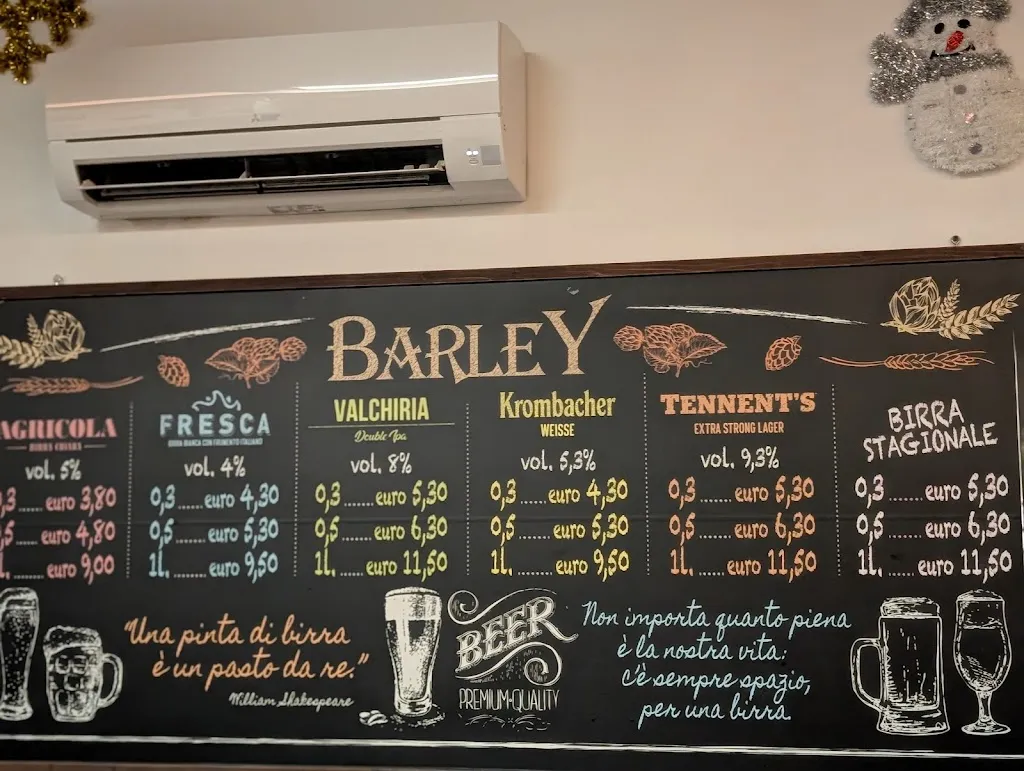 BARLEY
AGRICOLA
BIRRA CHIARA
vol. 5%
0,3 ...... euro 3,80
0,5 ...... euro 4,80
1L. ...... euro 9,00
FRESCA
BIRRA BIANCA CON FRUMENTO ITALIANO
vol. 4%
0,3 ...... euro 4,30
0,5 ...... euro 5,30
1L. ...... euro 9,50
VALCHIRIA
Double Ipa
vol. 8%
0,3 ...... euro 5,30
0,5 ...... euro 6,30
1L. ...... euro 11,50
Krombacher
WEISSE
vol. 5,3%
0,3 ...... euro 4,30
0,5 ...... euro 5,30
1L. ...... euro 9,50
TENNENT'S
EXTRA STRONG LAGER
vol. 9,3%
0,3 ...... euro 5,30
0,5 ...... euro 6,30
1L. ...... euro 11,50
BIRRA
STAGIONALE
0,3 ...... euro 5,30
0,5 ...... euro 6,30
1L. ...... euro 11,50
"Una pinta di birra
è un pasto da re."
William Shakespeare
BEER
PREMIUM QUALITY
Non importa quanto piena
è la nostra vita:
c'è sempre spazio,
per una birra.